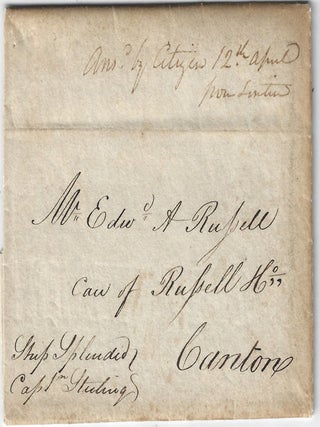 Ansd by Citizen 12th April
from Lintin
Mr Edwd A Russell
Care of Russell & Co
Canton
Ship Splendid
Captn Sterling